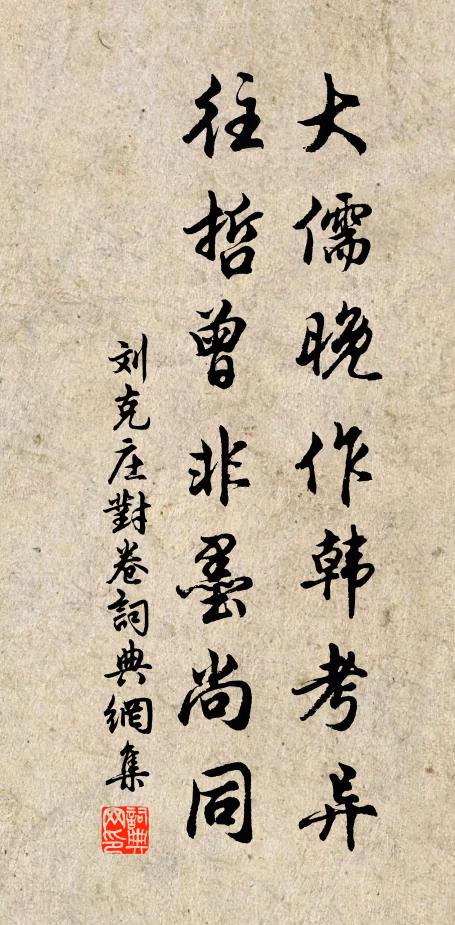 大儒晚作韩考异
往哲曾非墨尚同
刘克庄對卷詞典網集
詞典网印